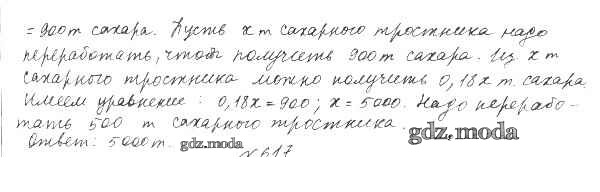 = 900т сахара. Пусть x т сахарного тростника надо
переработать, чтоб получить 900т сахара. Из x т
сахарного тростника можно получить 0,18x т. сахара
Имеем уравнение : 0,18x = 900 ; x = 5000. Надо перерабо-
тать 500 т сахарного тростника.
gdz.moda
Ответ: 5000т. gdz.moda
№ 617